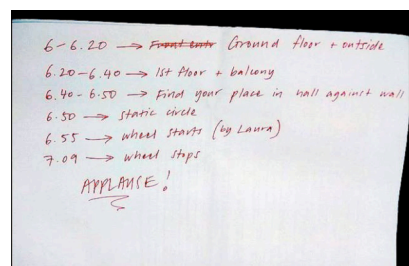 6-6.20 → Ground floor + outside
6.20-6.40 → 1st floor + balcony
6.40-6.50 → Find your place in hall against wall
6.50 → static circle
6.55 → wheel starts (by Laura)
7.09 → wheel stops
APPLAUSE!